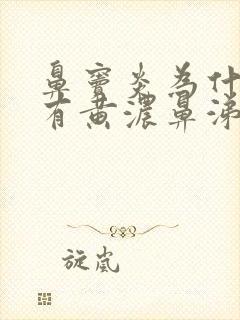 鼻窦炎为什
有黄浓鼻涕
旋岚